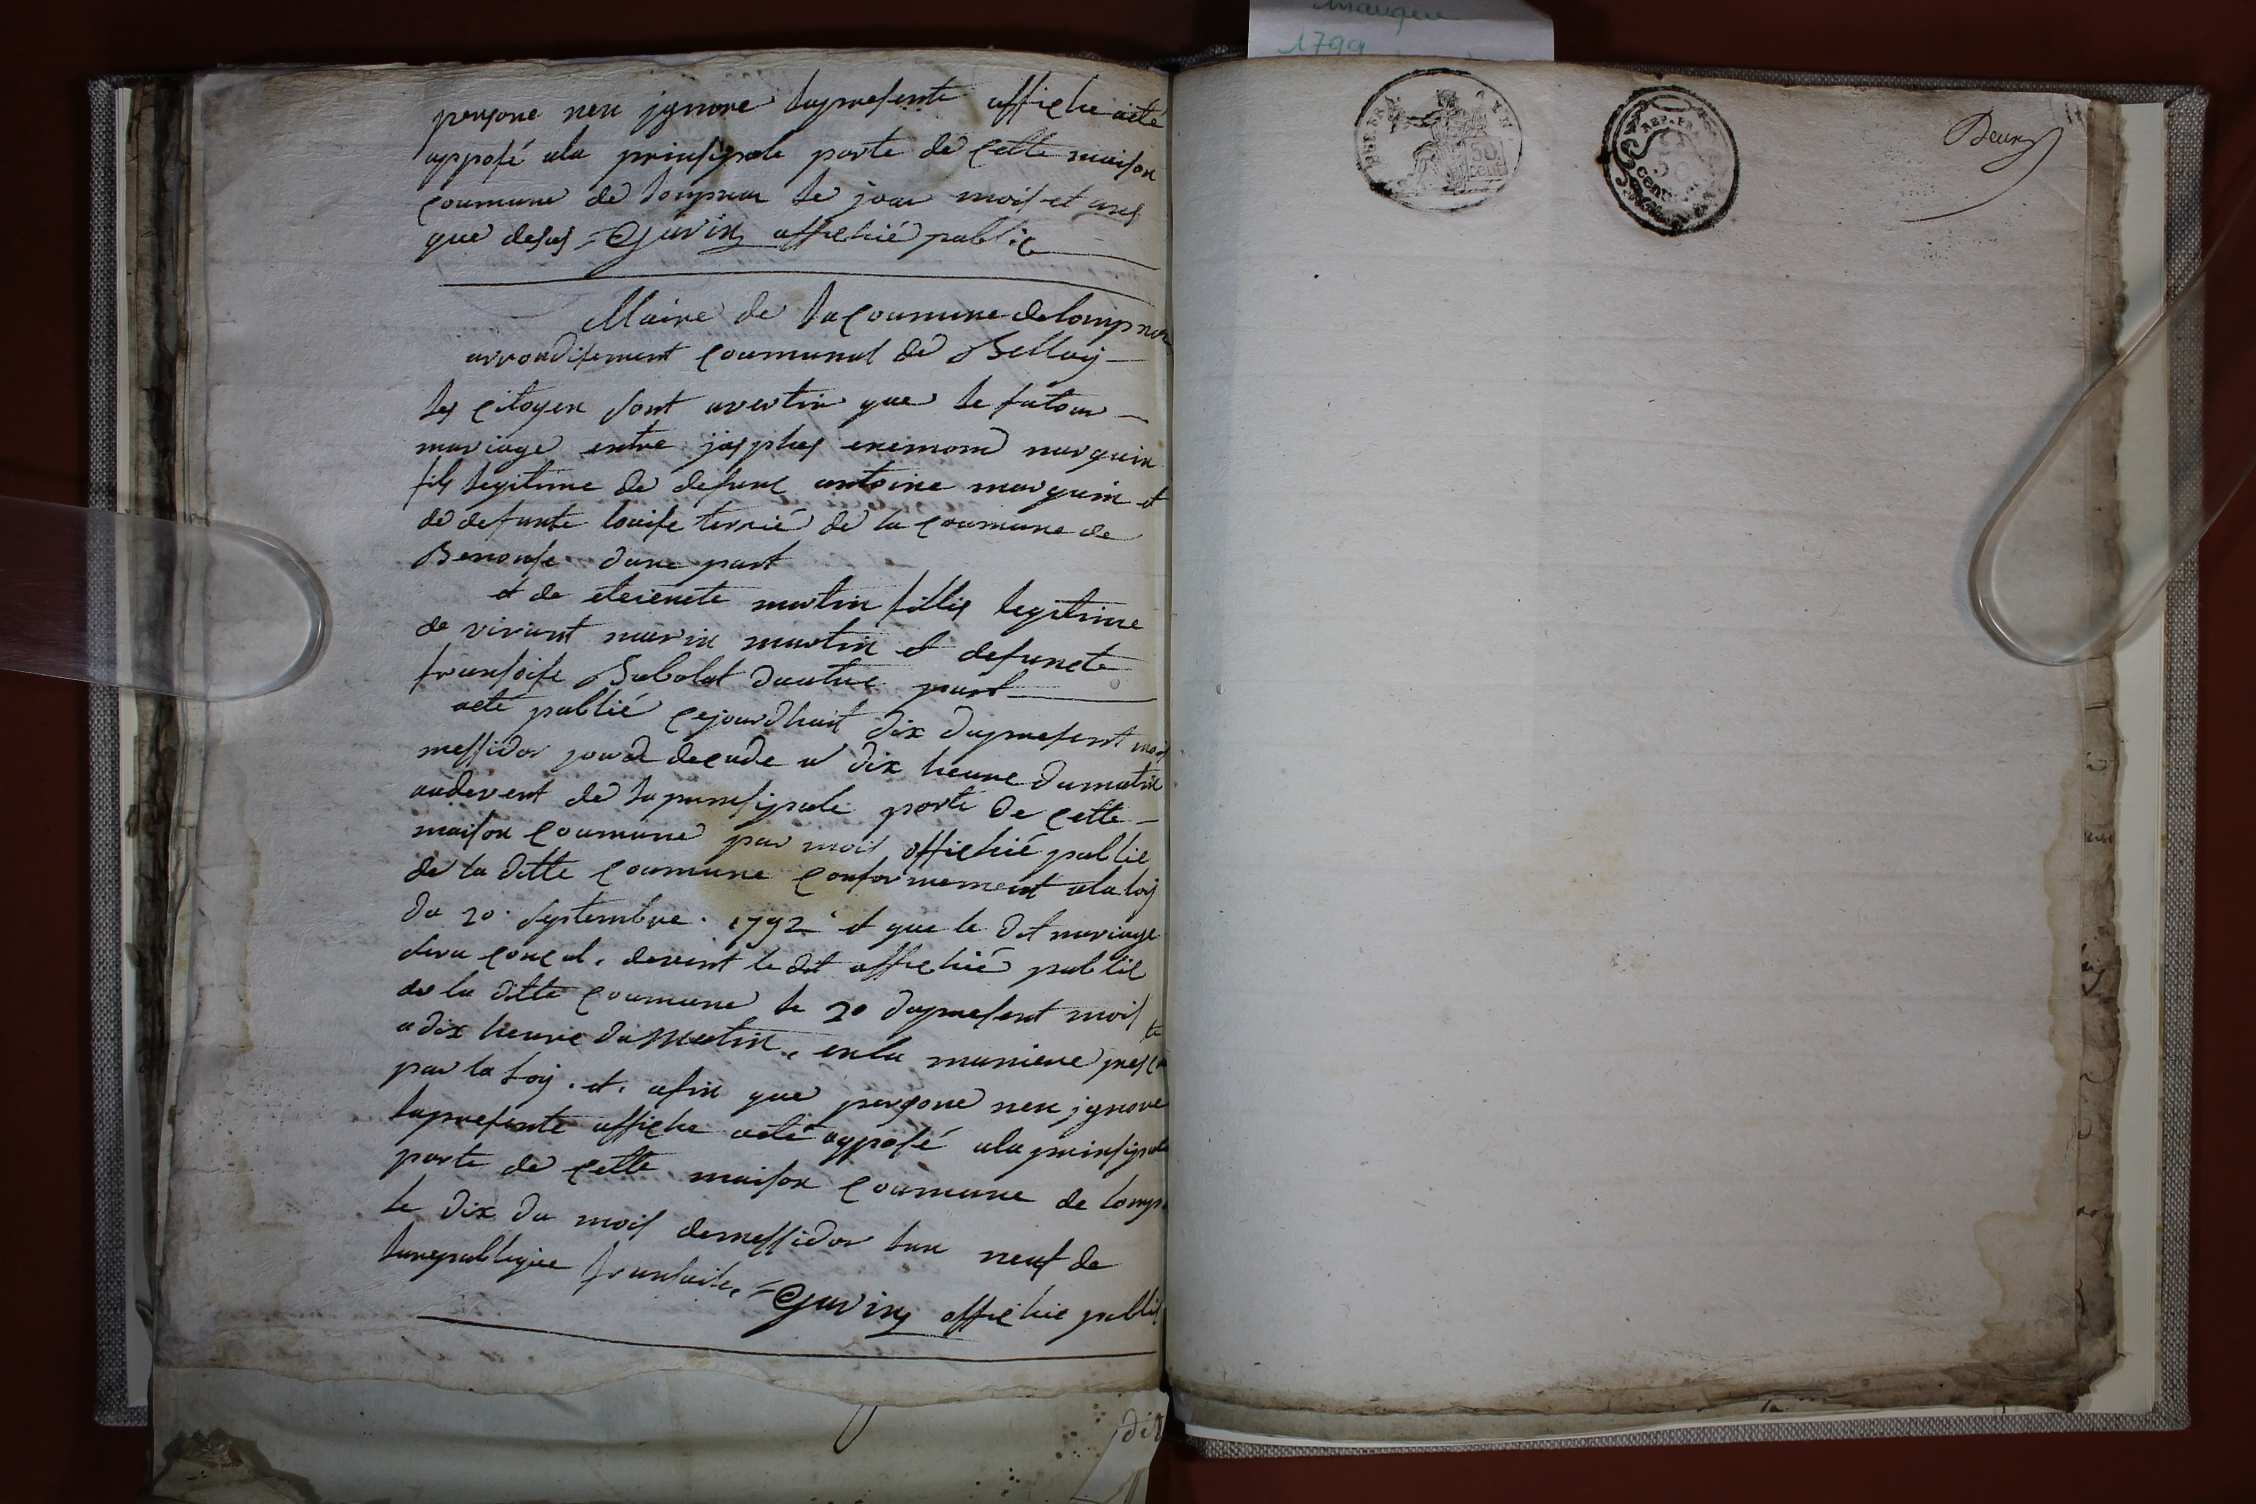 manque
1799
persone nen jgnore lapresente affiche acte
apposé ala prinsipale porte de cette maison
coumune de lompnas le jour mois et ans
que desus Gavin affichié public
Maire de la coumune de lompnas
arrondisement coumunal de Belley
les citoyen sont avertir que le futour
mariage entre marguin
fils legitime de defunc antoine marguin et
de defunte louise terrié de la coumune de
Benonse dune part
et de eteienete martin fillie legitime
de vivant marin martin et defuncte
fransoise Babolat dautre part
acte publié cejourdhuit dix dupresent mois
messidor jour de decade a dix heure du matin
audevent de la prinsipale porte de cette
maison coumune par moit affichié public
de la ditte coumune conformement ala loy
du 20 septembre 1792 et que le dit mariage
sera devent le dit affichié public
de la ditte coumune le 20 dupresent mois
a dix heure du matin, en la maniere
par la loy. et. afin que persone nen jgnore
lapresente affiche acte apposé ala prinsipale
porte de cette maison coumune de
le dix du mois demessidor lan neuf de
larepublique fransaise, Gavin affichie public
dit
REP. FRA.
50
cent
REP. FRA.
50
cent